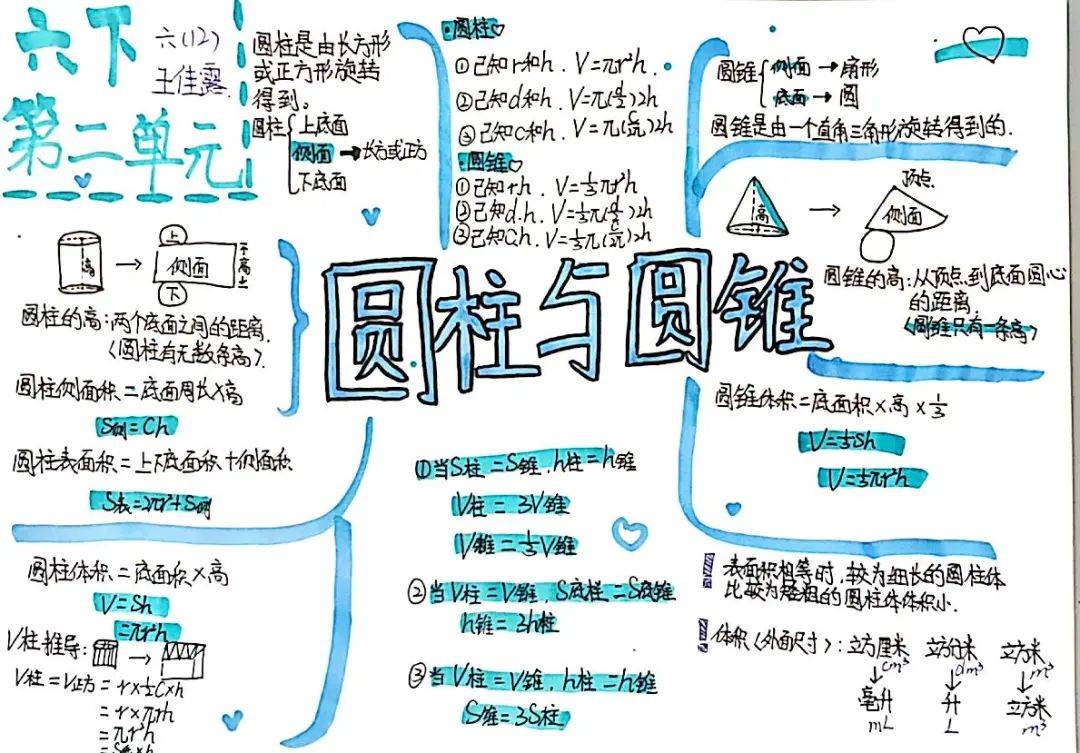 六下
第二单元
六(12)
王佳露
圆柱是由长方形
或正方形旋转
得到。
圆柱
上底面
侧面→长方或正方
下底面
高
上
侧面
下
高
圆柱的高:两个底面之间的距离.
(圆柱有无数条高).
圆柱侧面积=底面周长×高
S侧=Ch
圆柱表面积=上下底面积+侧面积
S表=2πr²+S侧
圆柱体积=底面积×高
V=Sh
=πr²h
V柱推导:
V柱=V正方=r×½C×h
=r×πrh
=πr²h
圆柱
①已知r和h.V=πr²h.
②已知d和h.V=π(d/2)2h
③已知C和h.V=π(C/2π)2h
圆锥
①已知r.h.V=⅓πr²h
②已知d.h.V=⅓π(d/2)2h
③已知C.h.V=⅓π(C/2π)2h
圆柱与圆锥
①当S柱=S锥.h柱=h锥
V柱=3V锥
V锥=⅓V锥
②当V柱=V锥,S底柱=S底锥
h锥=3h柱
③当V柱=V锥,h柱=h锥
S锥=3S柱
圆锥
侧面→扇形
底面→圆
圆锥是由一个直角三角形旋转得到的.
高
顶点
侧面
圆锥的高:从顶点到底面圆心
的距离
(圆锥只有一条高)
圆锥体积=底面积×高×⅓
V=⅓Sh
V=⅓πr²h
表面积相等时,较为细长的圆柱体
比较为短粗的圆柱体体积小.
体积(外面尺寸):立方厘米 立方分米 立方米
cm³ dm³ m³
毫升 升 立方米
mL L m³